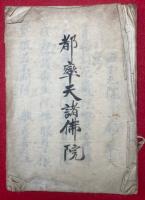 都率天諸佛院